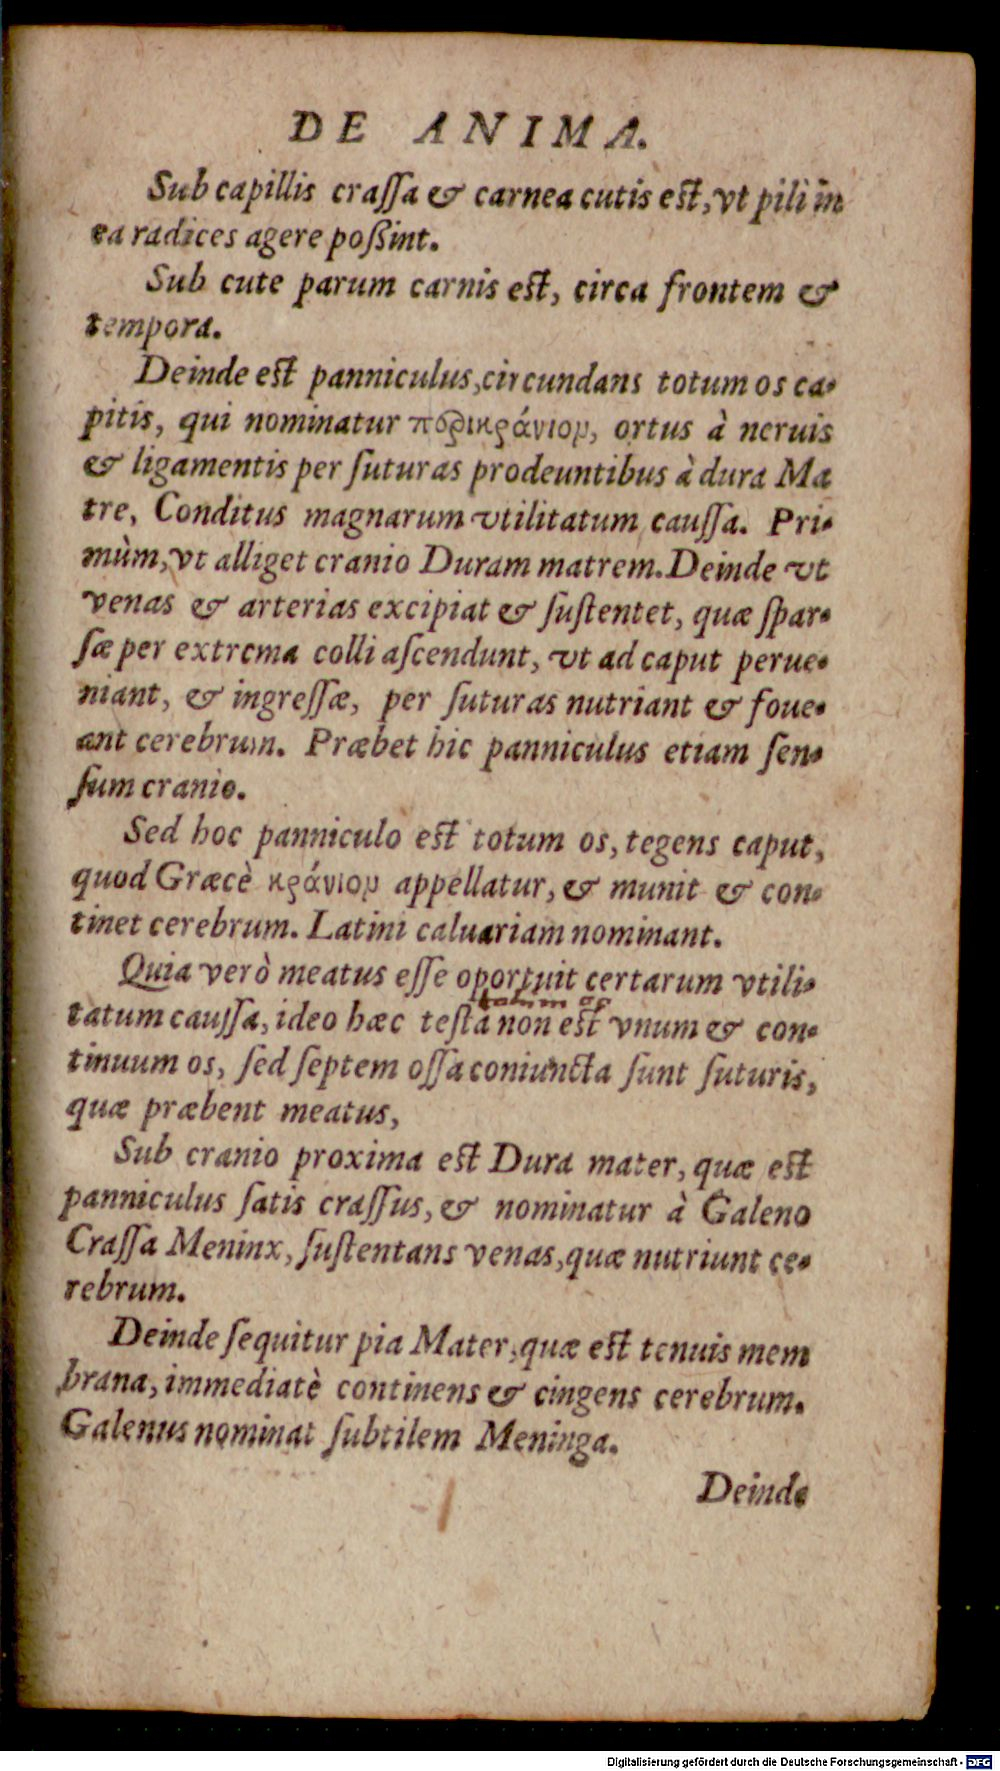 DE ANIMA.
Sub capillis craſſa & carnea cutis eſt, vt pili in
ea radices agere poßint.
Sub cute parum carnis eſt, circa frontem &
tempora.
Deinde eſt panniculus, circundans totum os ca-
pitis, qui nominatur περικράνιομ, ortus à neruis
& ligamentis per ſuturas prodeuntibus à dura Ma
tre, Conditus magnarum vtilitatum cauſſa. Pri-
mùm, vt alliget cranio Duram matrem. Deinde vt
venas & arterias excipiat & ſuſtentet, quæ ſpar-
ſæ per extrema colli aſcendunt, vt ad caput perue-
niant, & ingreſſæ, per ſuturas nutriant & foue-
ant cerebrum. Præbet hic panniculus etiam ſen-
ſum cranio.
Sed hoc panniculo eſt totum os, tegens caput,
quod Græcè κράνιομ appellatur, & munit & con-
tinet cerebrum. Latini caluariam nominant.
Quia verò meatus eſſe oportuit certarum vtili-
tatum cauſſa, ideo hæc teſta non eſt vnum & con-
tinuum os, ſed ſeptem oſſa coniuncta ſunt ſuturis,
quæ præbent meatus,
Sub cranio proxima eſt Dura mater, quæ eſt
panniculus ſatis craſſus, & nominatur à Galeno
Craſſa Meninx, ſuſtentans venas, quæ nutriunt ce-
rebrum.
Deinde ſequitur pia Mater, quæ eſt tenuis mem
brana, immediatè continens & cingens cerebrum.
Galenus nominat ſubtilem Meninga.
Deinde
Digitalisierung gefördert durch die Deutsche Forschungsgemeinschaft - DFG